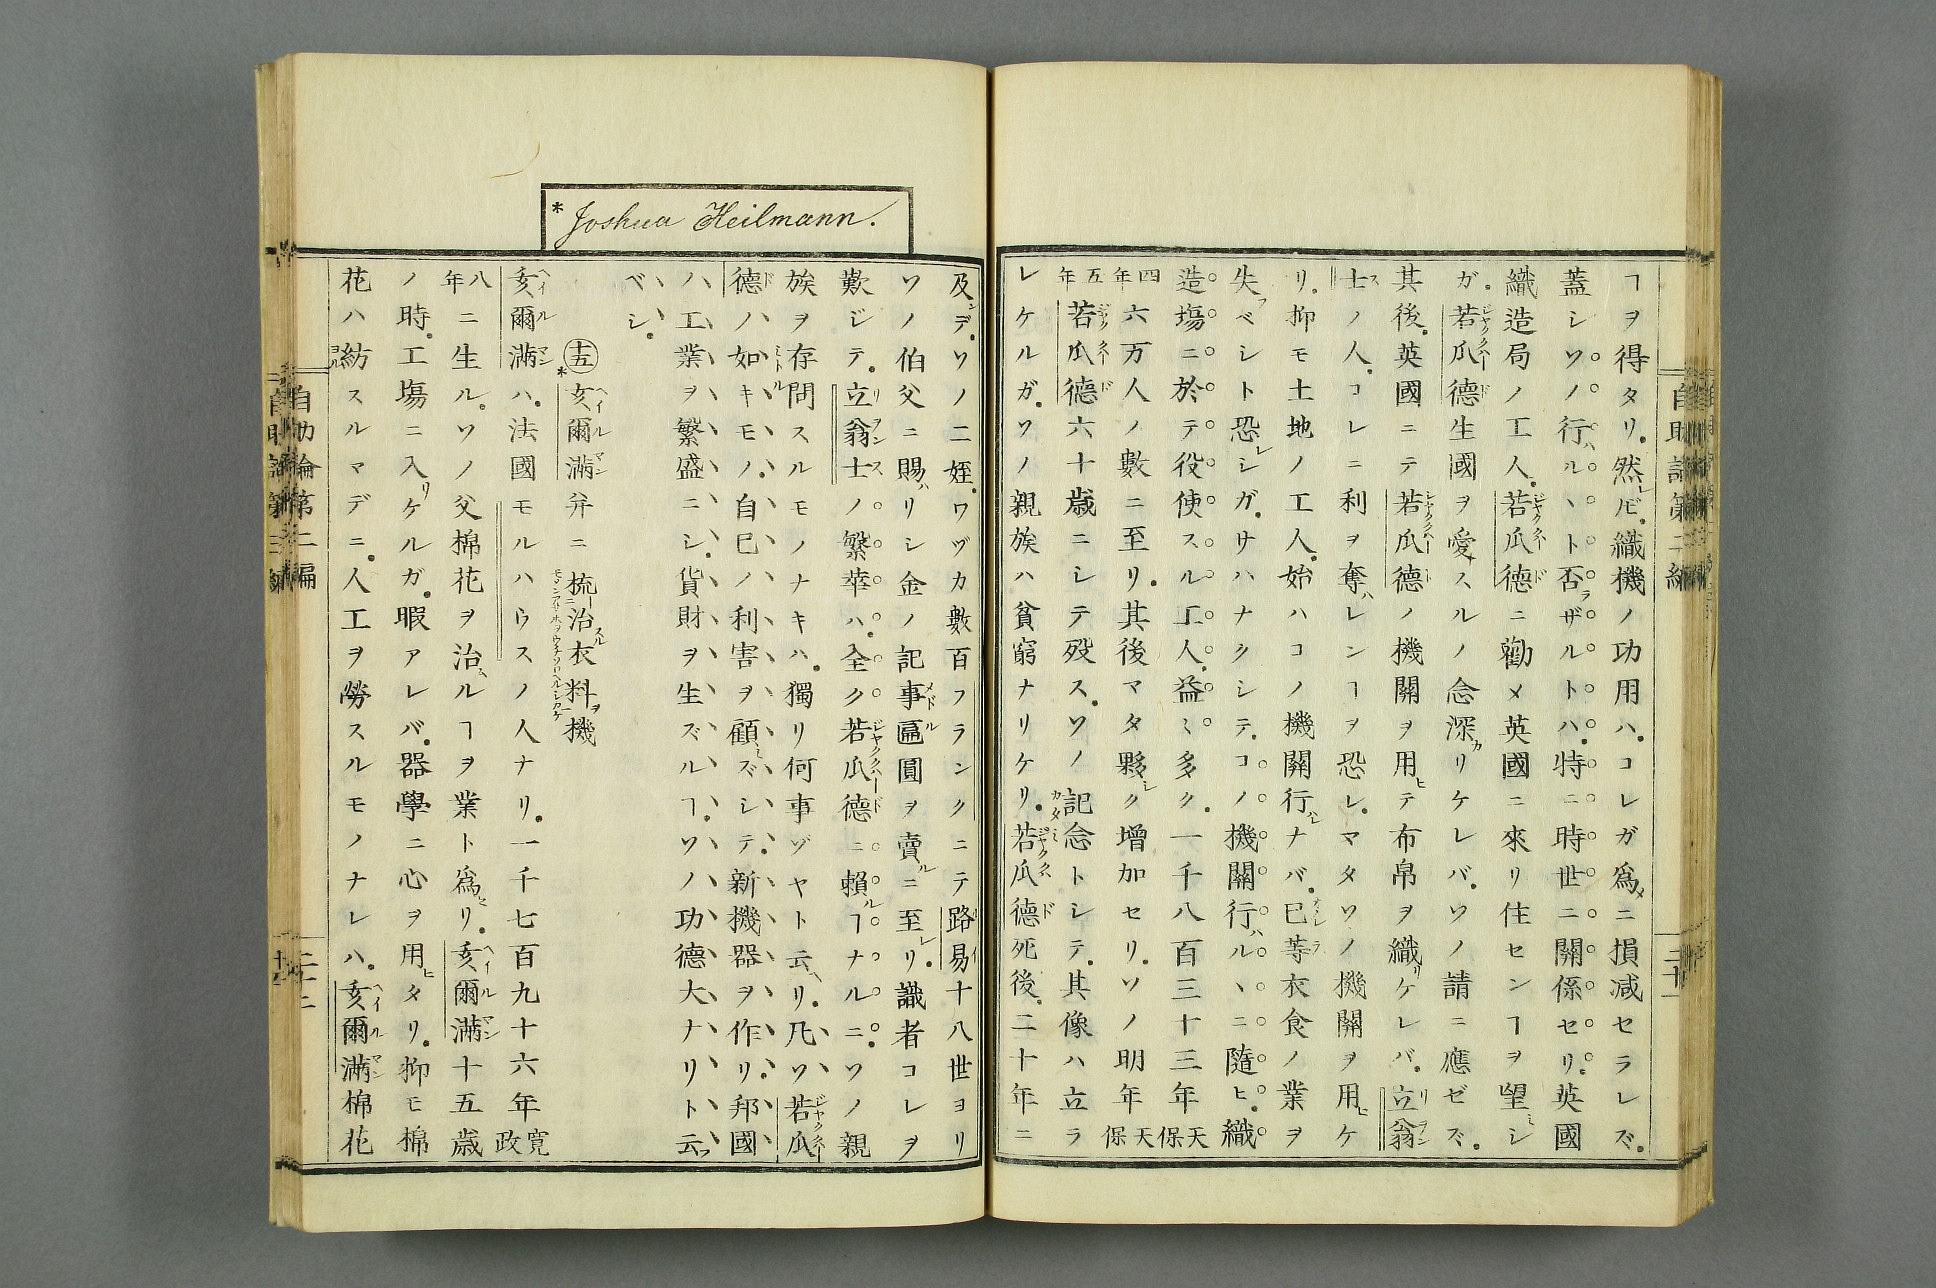 ヿヲ得タリ。然レ𪜈。織機ノ功用ハ。コレガ爲メニ損减セラレズ。
蓋シソノ行ハルヽト否ラザルトハ。特ニ時世ニ關係セリ。英國
織造局ノ工人。若瓜德ニ勸メ英國ニ來リ住センヿヲ望ミシ
ガ。若瓜德生國ヲ愛スルノ念深カリケレバ。ソノ請ニ應ゼズ。
其後。英國ニテ若瓜德ノ機關ヲ用ヒテ布帛ヲ織リケレバ。立翁
士ノ人。コレニ利ヲ奪ハレンヿヲ恐レ。マタソノ機關ヲ用ヒケ
リ。抑モ土地ノ工人。始ハコノ機關行ハレナバ。已等衣食ノ業ヲ
失フベシト恐レシガ。サハナクシテ。コノ機關行ハルヽニ隨ヒ。織
造塲ニ於テ役使スル工人。益〻多ク。一千八百三十三年天保
四年六万人ノ數ニ至リ。其後マタ夥シク增加セリ。ソノ明年天保
五年若瓜德六十歳ニシテ歿ス。ソノ記念トシテ。其像ハ立ラ
レケルガ。ソノ親族ハ貧窮ナリケリ。若瓜德死後。二十年ニ
自助論第二編
二十一
Joshua Heilmann.
及ンデ。ソノ二姪。ワヅカ數百フランクニテ路易十八世ヨリ
ソノ伯父ニ賜ハリシ金ノ記事匾圓ヲ賣ルニ至レリ。識者コレヲ
歎ジテ。立翁士ノ繁華ハ。全ク若瓜德ニ賴ルヿナルニ。ソノ親
族ヲ存問スルモノナキハ。獨リ何事ゾヤト云ヘリ。凡ソ若瓜
德ノ如キモノ。自已ノ利害ヲ顧ミズシテ。新機器ヲ作リ。邦國
ハ工業ヲ繁盛ニシ。貨財ヲ生ズルヿ。ソノ功德大ナリト云フ
ベシ。
十五 *亥爾滿弁ニ梳治衣料機
亥爾滿ハ。法國モルハウスノ人ナリ。一千七百九十六年寬政
八年ニ生ル。ソノ父棉花ヲ治ムルヿヲ業ト爲セリ。亥爾滿十五歳
ノ時。工塲ニ入リケルガ。暇アレバ。器學ニ心ヲ用ヒタリ。抑モ棉
花ハ紡スルマデニ。人工ヲ勞スルモノナレハ。亥爾滿棉花
自助論第二編
二十二